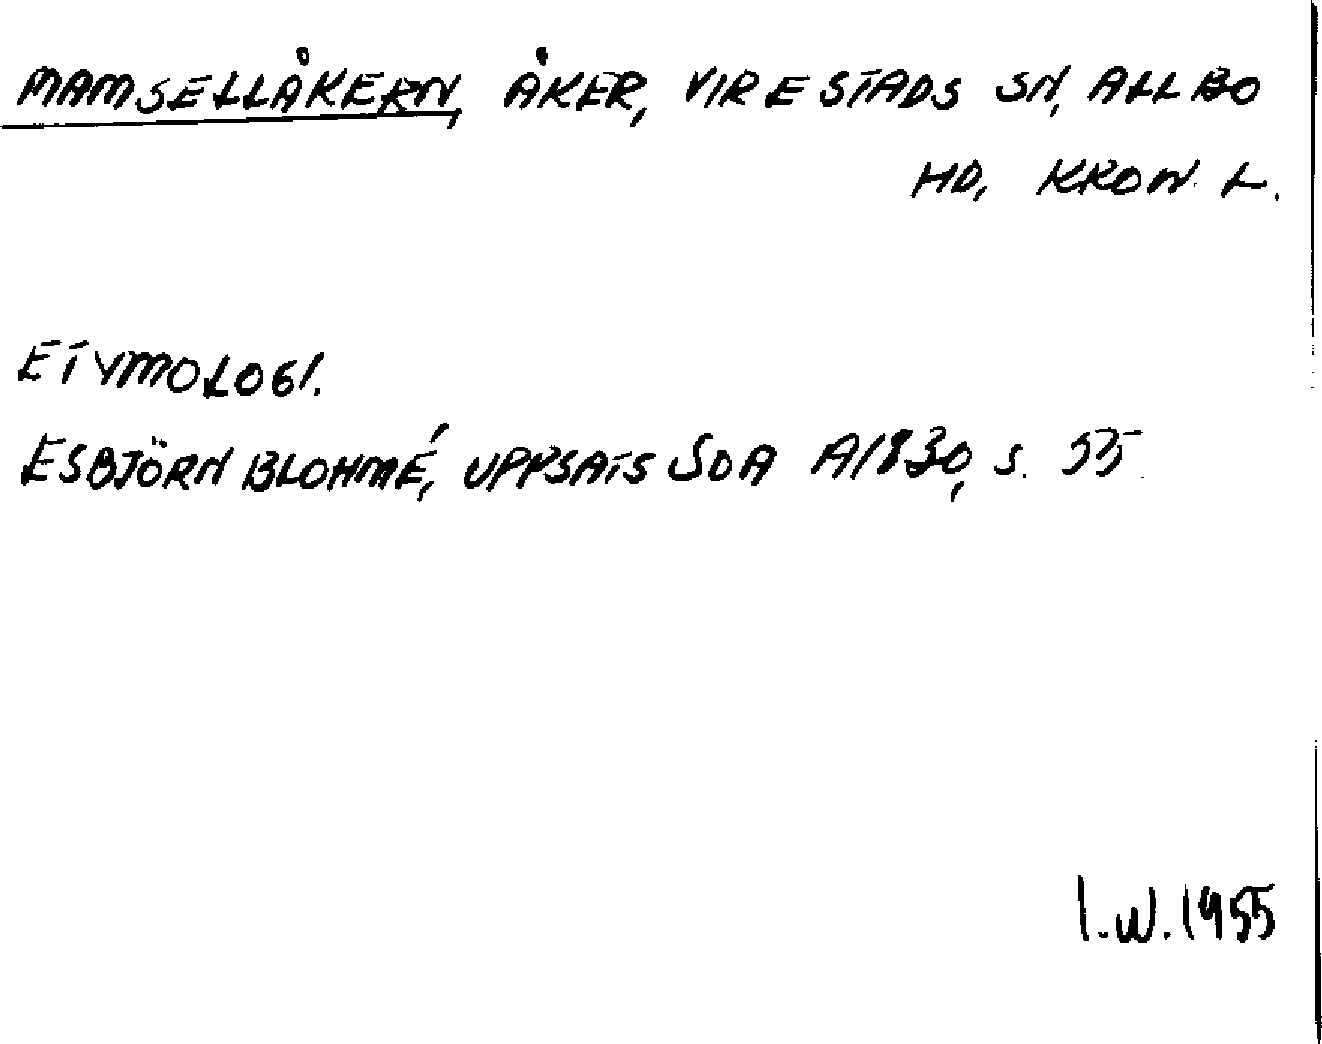 MAMSELLÅKERN, ÅKER, VIRESTADS SN, ALLBO
HD, KRON. L.
ETYMOLOGI.
ESBJÖRN BLOHMÉ, UPPSATS SOA A1830, s. 55.
I.W. 1955